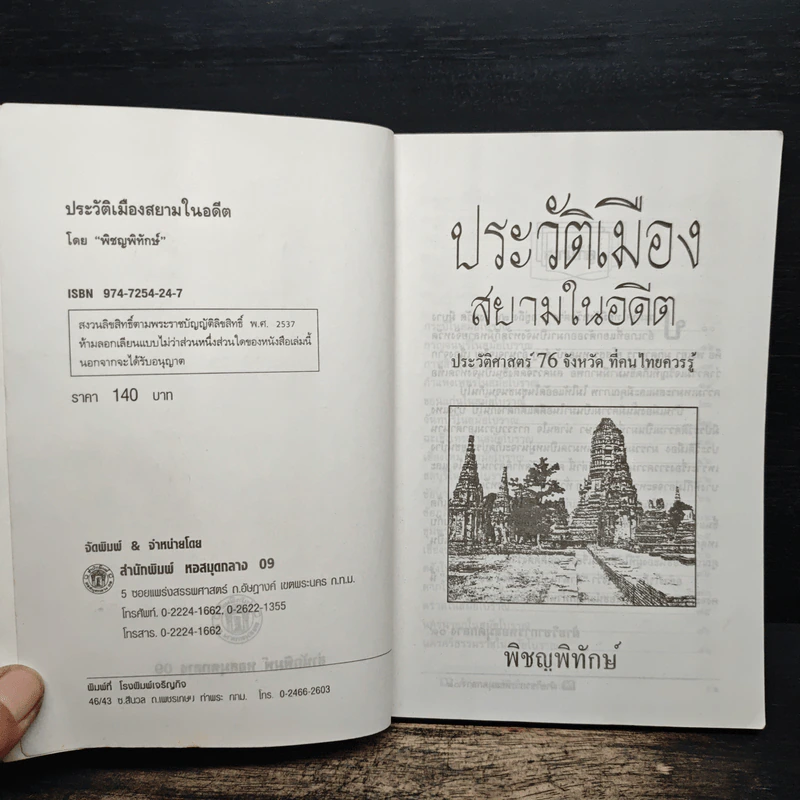 ประวัติเมืองสยามในอดีต
โดย "พิชญพิทักษ์"
ISBN 974-7254-24-7
สงวนลิขสิทธิ์ตามพระราชบัญญัติลิขสิทธิ์ พ.ศ. 2537
ห้ามลอกเลียนแบบไม่ว่าส่วนหนึ่งส่วนใดของหนังสือเล่มนี้
นอกจากจะได้รับอนุญาต
ราคา 140 บาท
จัดพิมพ์ & จำหน่ายโดย
สำนักพิมพ์ หอสมุดกลาง 09
5 ซอยแพร่งสรรพศาสตร์ ถ.อัษฎางค์ เขตพระนคร ก.ท.ม.
โทรศัพท์. 0-2224-1662, 0-2622-1355
โทรสาร. 0-2224-1662
พิมพ์ที่ โรงพิมพ์เจริญกิจ
46/43 ซ.สีนวล ถ.เพชรเกษม ท่าพระ กทม. โทร. 0-2466-2603
ประวัติเมือง
สยามในอดีต
ประวัติศาสตร์ 76 จังหวัด ที่คนไทยควรรู้
พิชญพิทักษ์